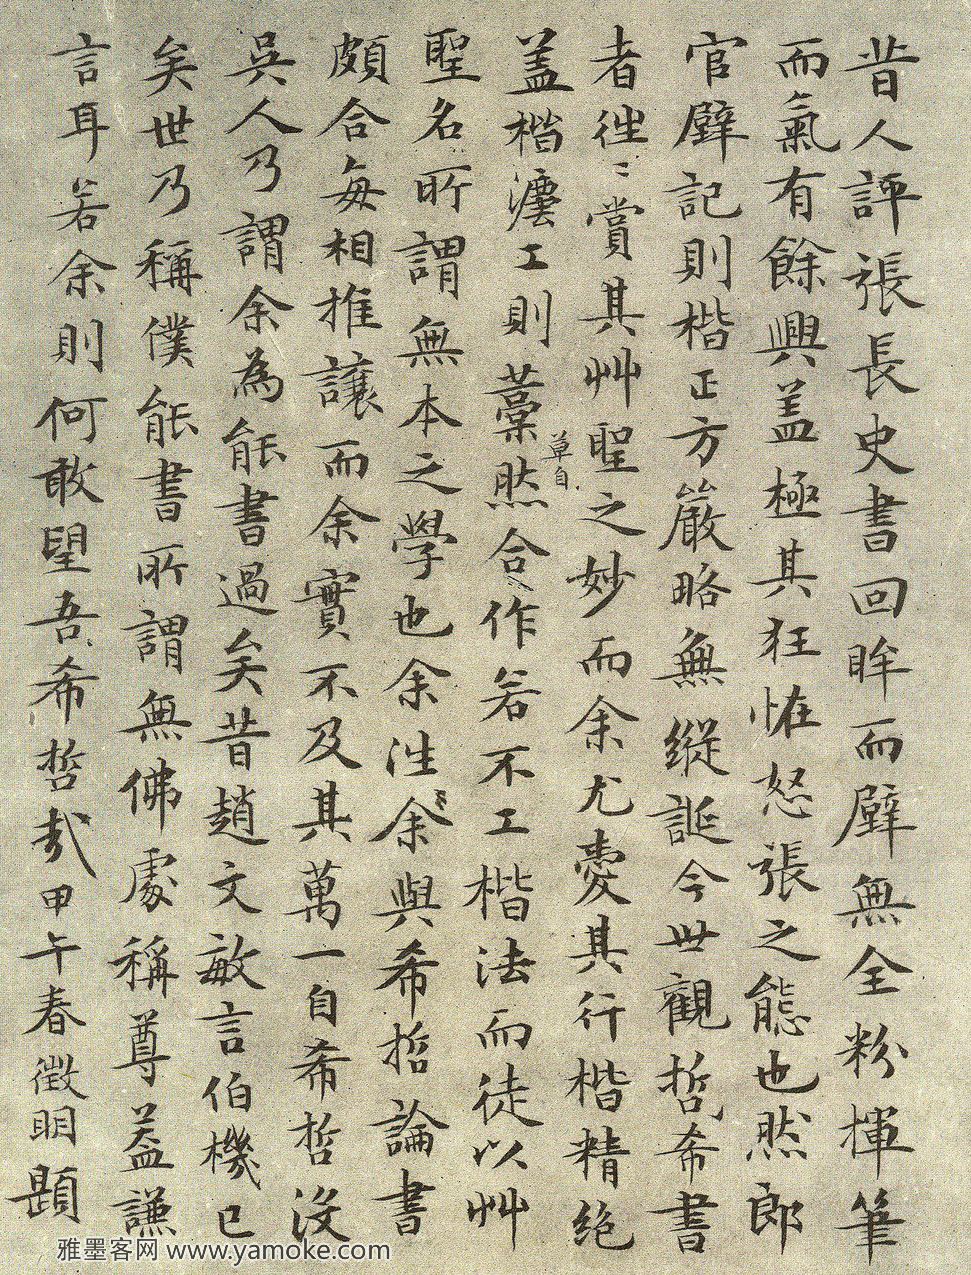 昔人評張長史書回眸而壁無全粉揮筆
而氣有餘興盖極其狂怪怒張之態也然郎
官壁記則楷正方嚴略無縱誕今世觀哲希書
者徃〻賞其艸聖之妙而余尤愛其行楷精絶
盖楷法工則藁然合作若不工楷法而徒以艸
草自
聖名所謂無本之學也余徃余與希哲論書
頗合每相推讓而余實不及其萬一自希哲没
吳人乃謂余為能書過矣昔趙文敏言伯機已
矣世乃稱僕能書所謂無佛處稱尊益謙
言耳若余則何敢望吾希哲哉甲午春徵明題
雅墨客网 www.yamoke.com